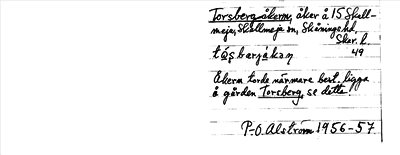 Torsbergåkern, åker å 15 Skall-
meja, Skallmeja sn, Skånings hd,
Skar. l.
49
tå̱s barjåkan
Åkern torde närmare best. ligga
å gården Torsberg, se detta.
P-O. Alström 1956-57